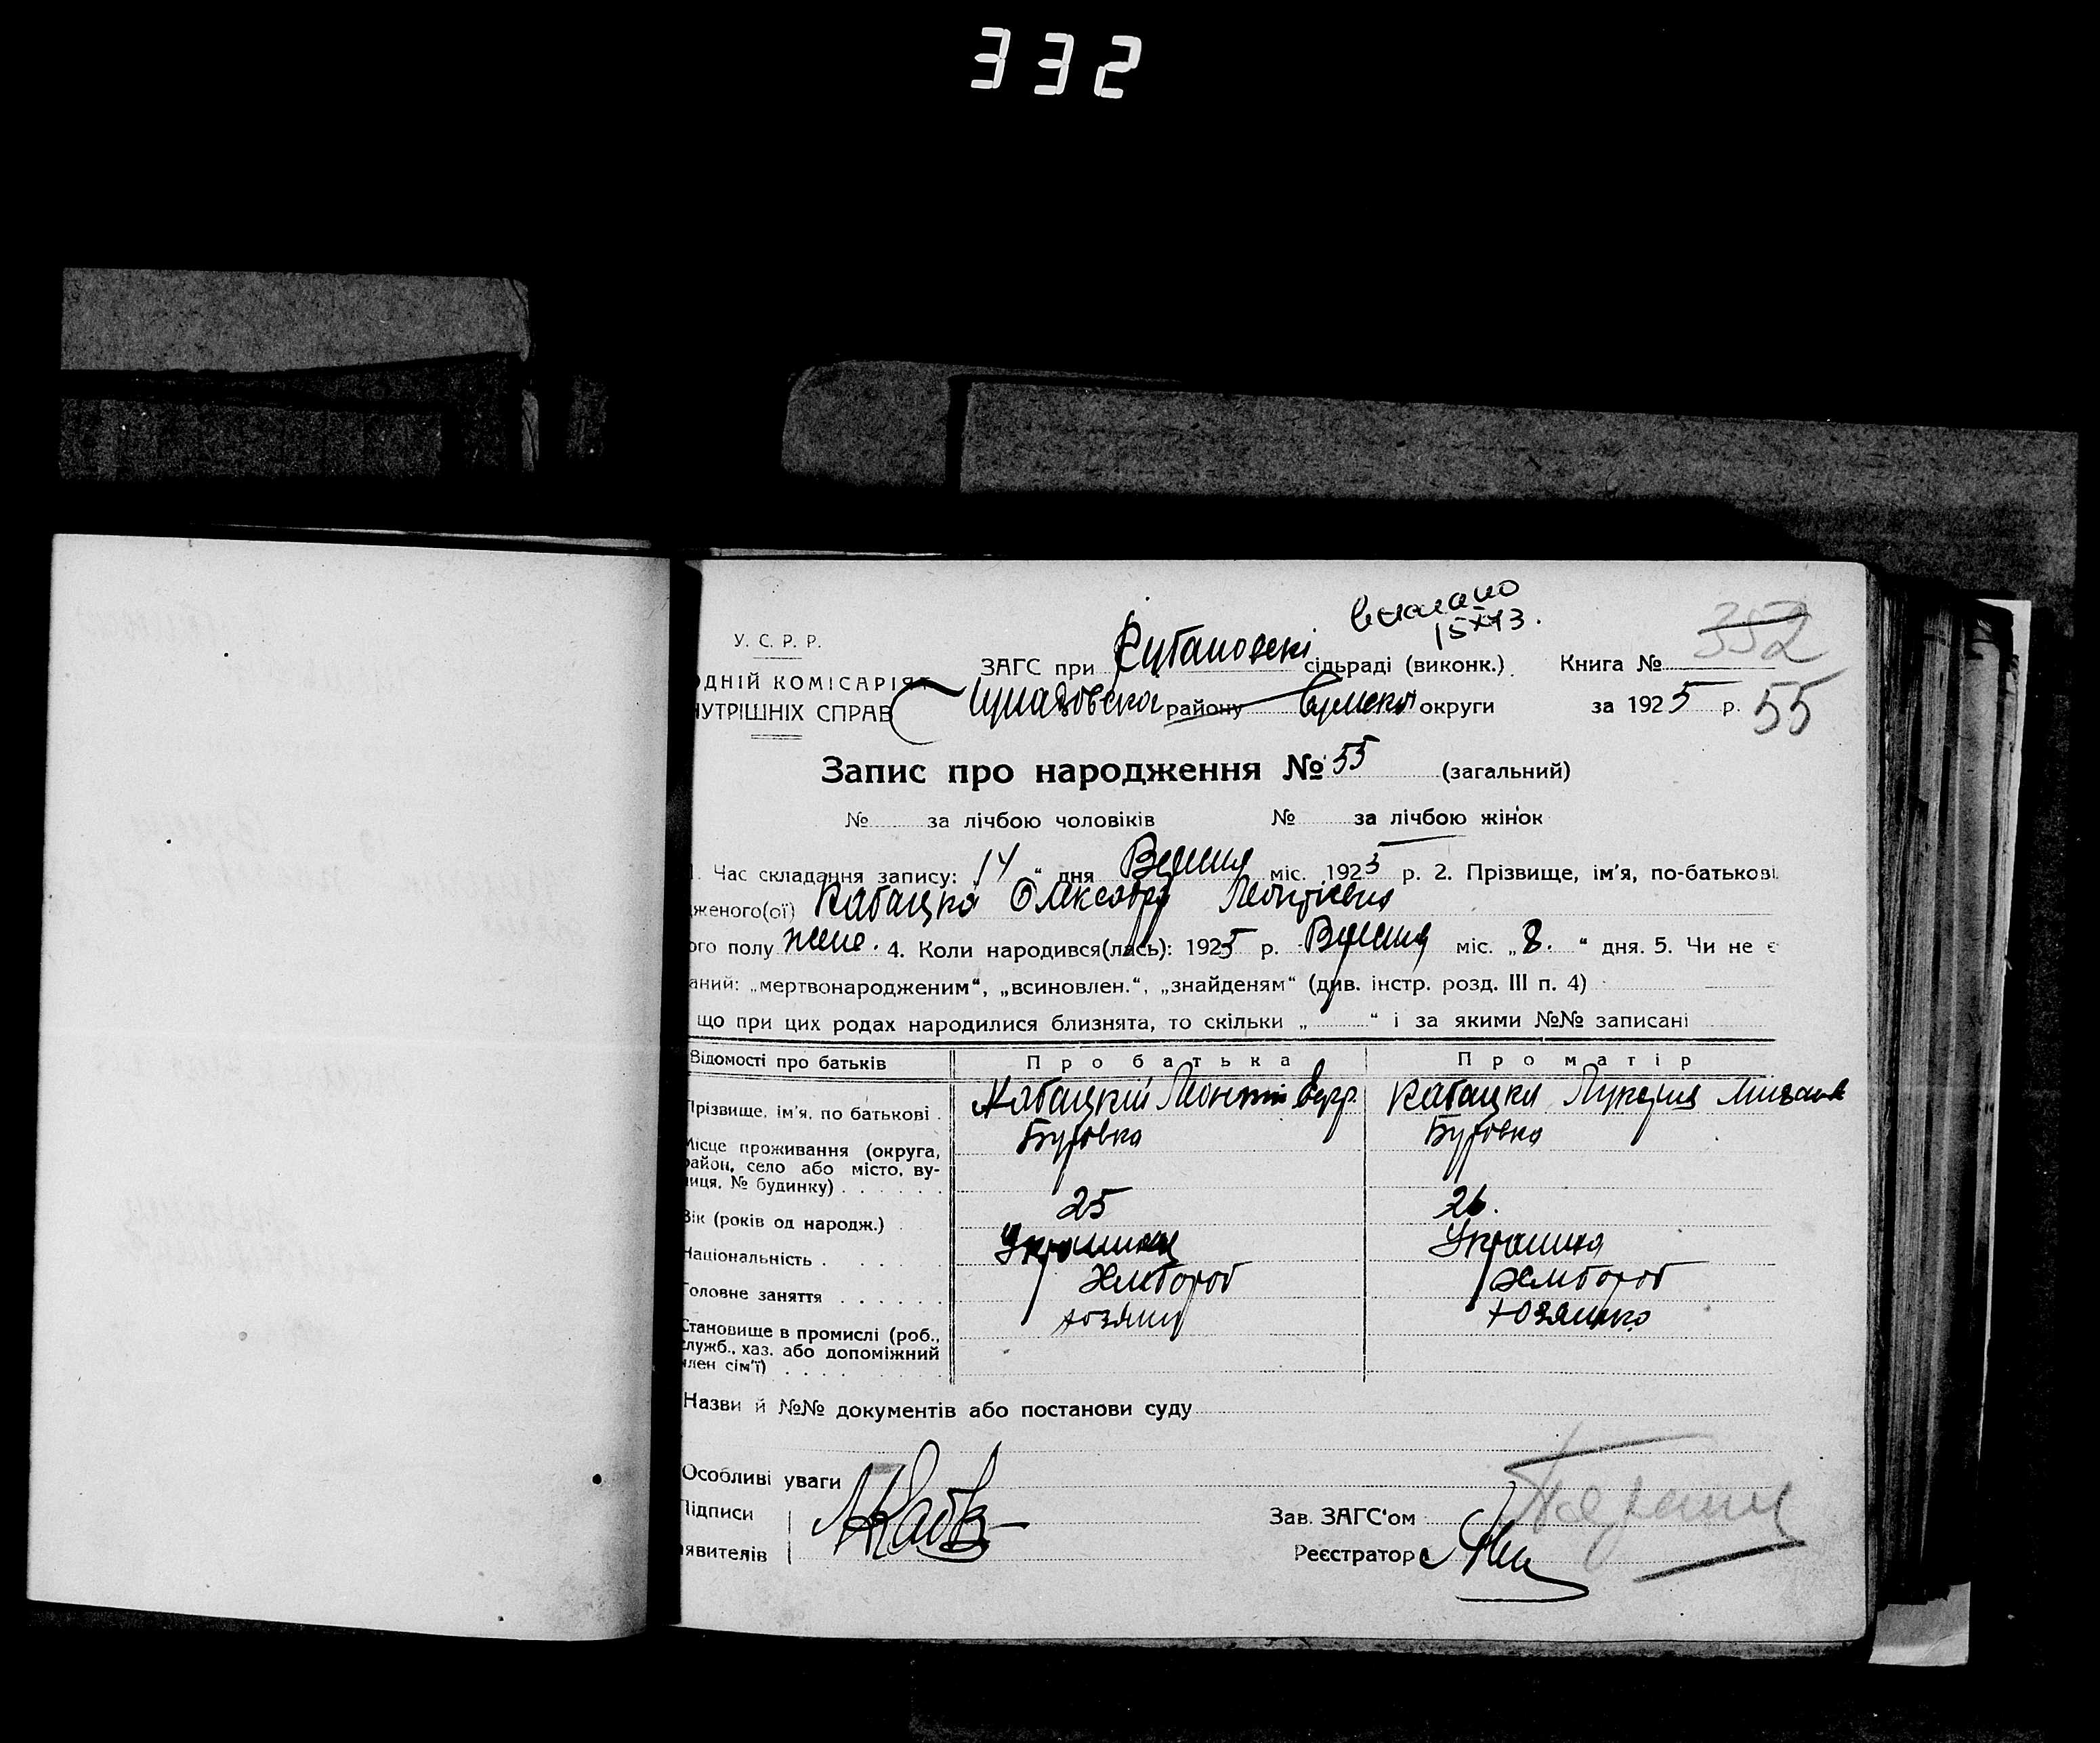 332
15 XI 13.
352
У. С. Р. Р.
ЗАГС при сільраді (виконк.). Книга №
ОДНІЙ КОМІСАРІЯТ
району округи за 1925 р. 55
НУТРІШНІХ СПРАВ
Запис про народження № 55 (загальний)
№ за лічбою чоловіків № за лічбою жінок
1. Час складання запису: „14“ дня Вересня міс. 1925 р. 2. Прізвище, ім'я, по-батькові
дженого(ої) Кабацка Олександра Леонтієвна
ого полу жено. 4. Коли народився(лась): 1925 р. Вересня міс. „8.“ дня. 5. Чи не є
аний: „мертвонародженим“, „всиновлен.“, „знайденям“ (див. інстр. розд. III п. 4)
що при цих родах народилися близнята, то скільки „ “ і за якими №№ записані
Відомості про батьків Про батька Про матір
Прізвище, ім'я, по батькові . Кабацкий Леонтій Кабацка Лукерия
Місце проживання (округа, Бутовка Бутовка
район, село або місто, ву-
лиця, № будинку) . . . . . .
Вік (років од народж.) . 25 26.
Національність . . . . Украинец Украинка
Головне заняття . . . . . . Хлибороб Хлибороб
Становище в промислі (роб., хозяин хозяйка
служб., хаз. або допоміжний
член сім'ї) . . . .
Назви й №№ документів або постанови суду
Особливі уваги
Підписи
Зав. ЗАГС'ом
явителів
Реєстратор